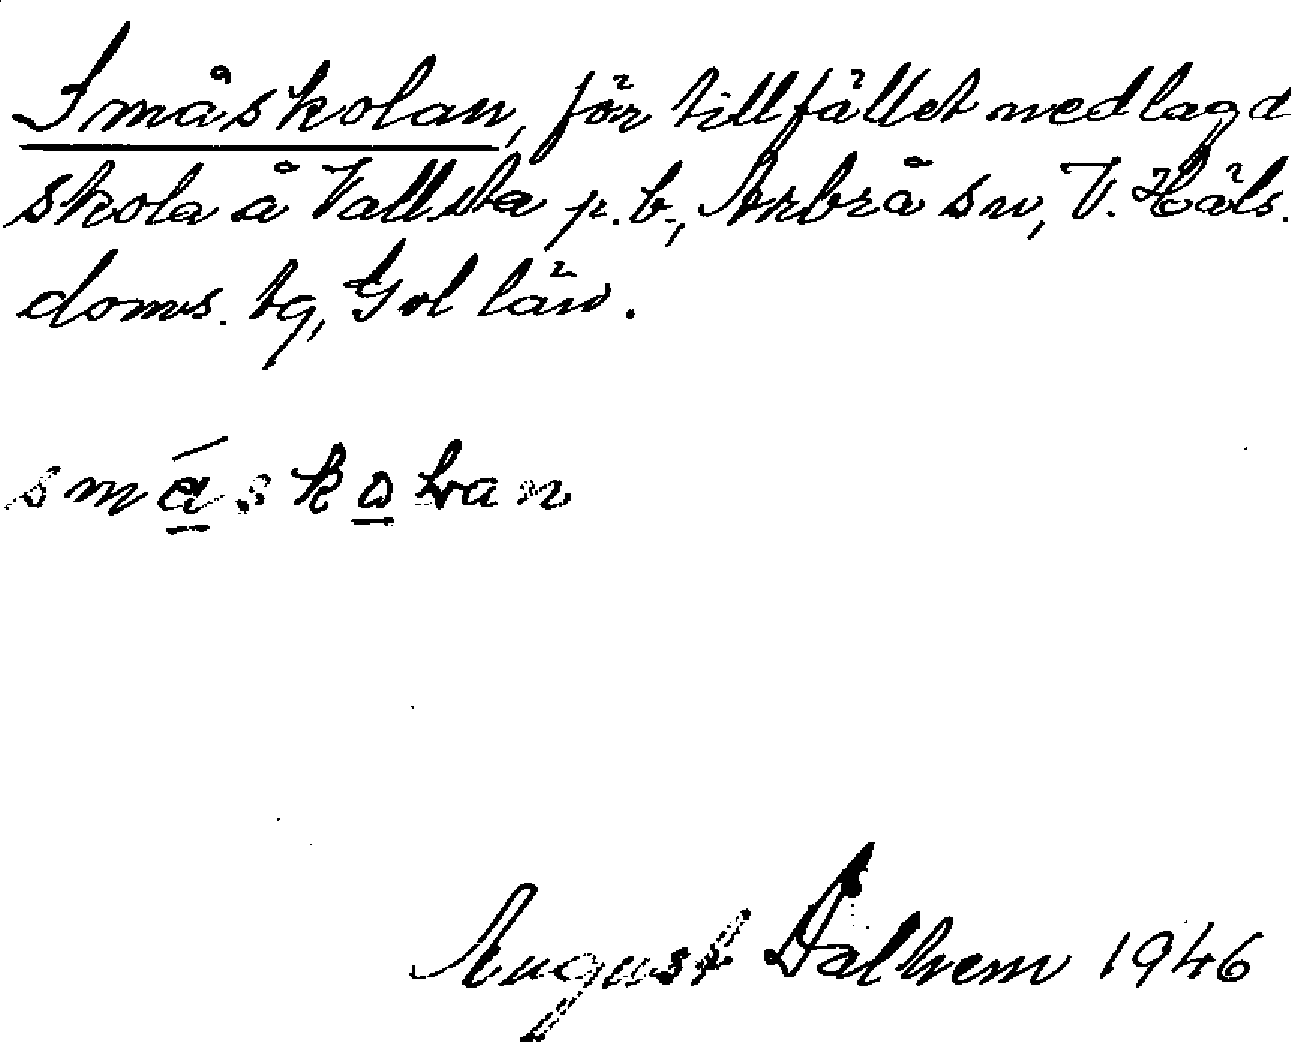 Småskolan, för tillfället nedlagd
skola å Vallsta p.b., Arbrå sn, V. Häls.
doms. tg, Gvl län.
småskolan
August Dalhem 1946